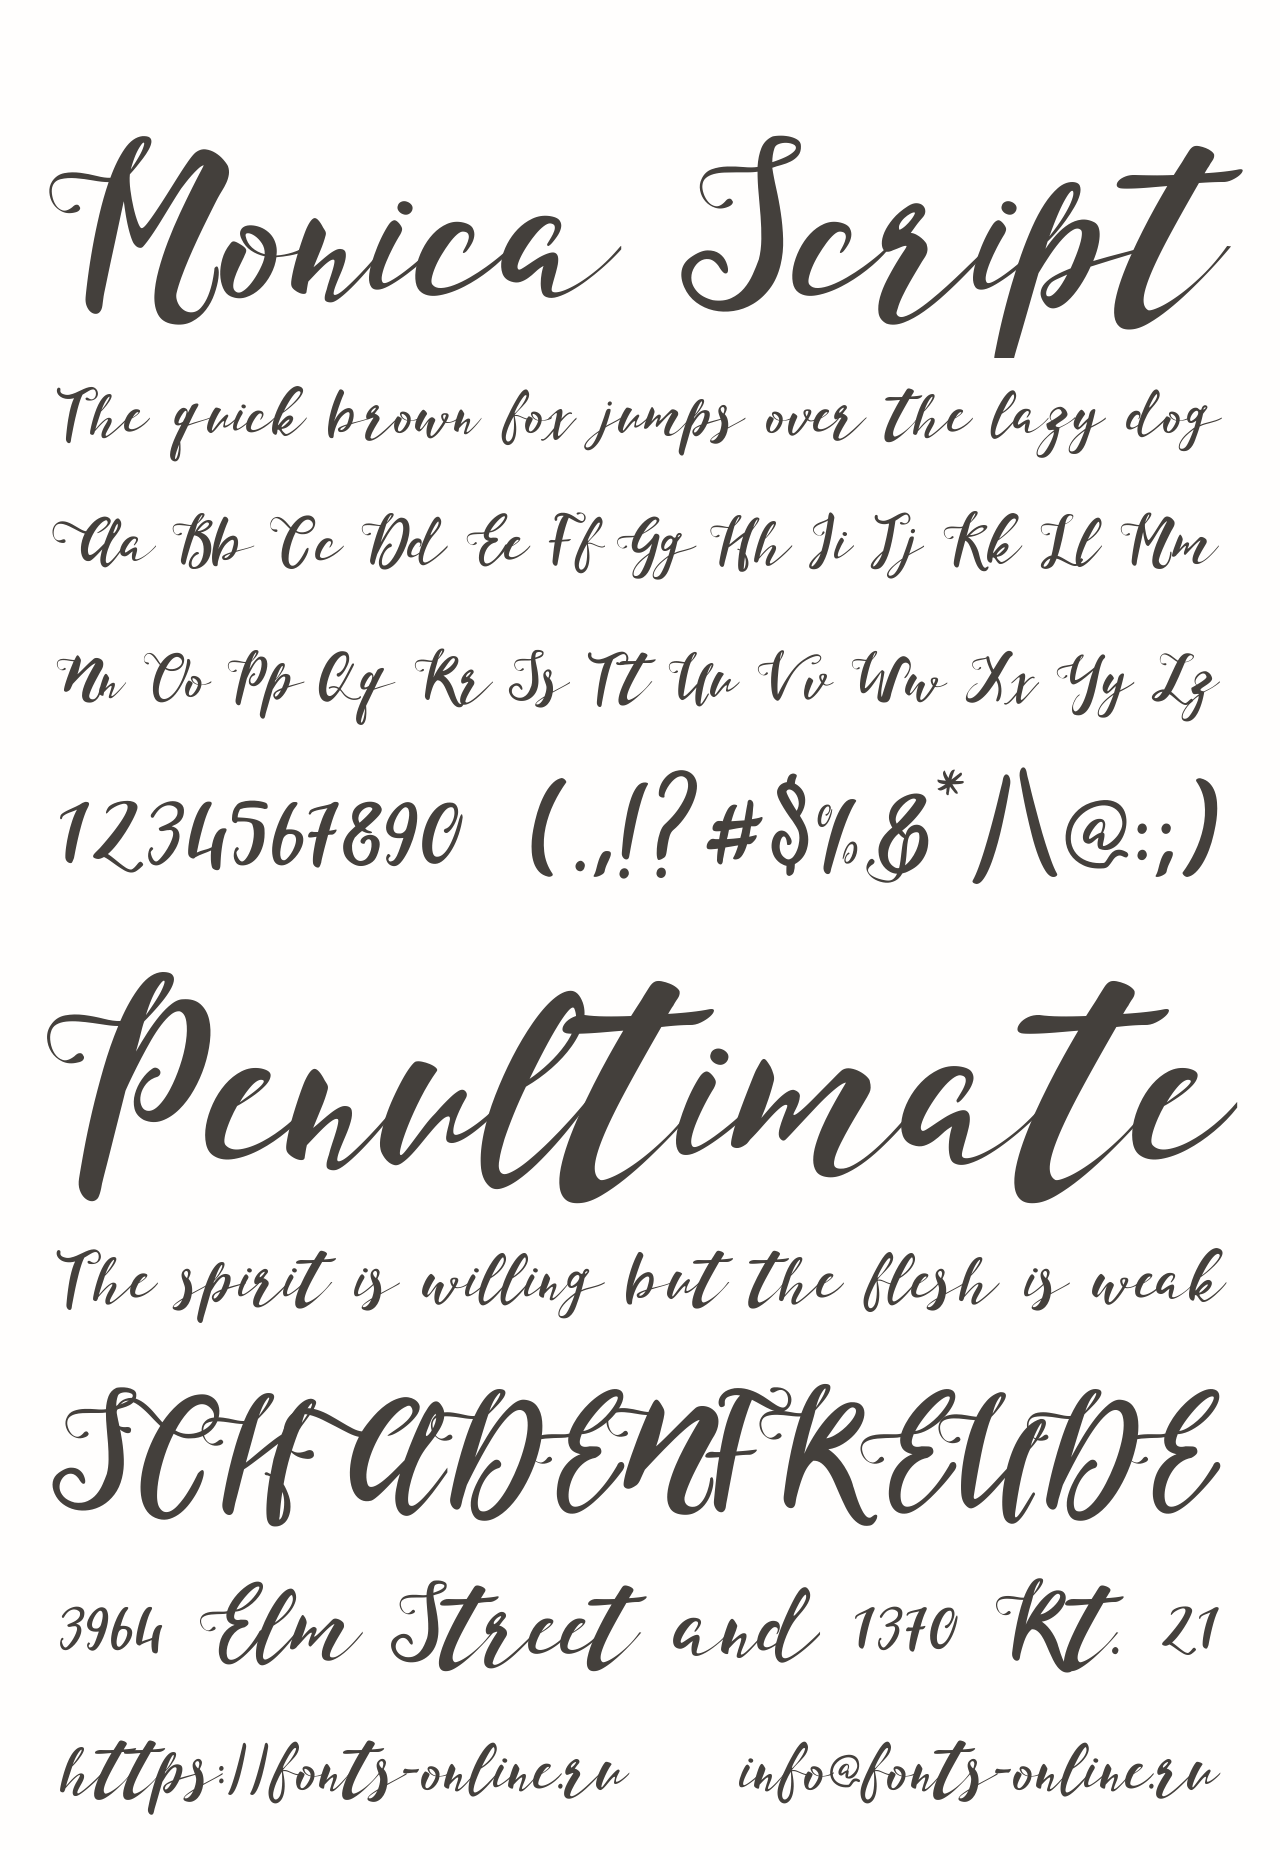 Monica Script
The quick brown fox jumps over the lazy dog
Aa Bb Cc Dd Ee Ff Gg Hh Ii Jj Kk Ll Mm
Nn Oo Pp Qq Rr Ss Tt Uu Vv Ww Xx Yy Zz
1234567890 (.,!?#$%&*/\@:;)
Penultimate
The spirit is willing but the flesh is weak
SCHADENFREUDE
3964 Elm Street and 1370 Rt. 21
https://fonts-online.ru info@fonts-online.ru